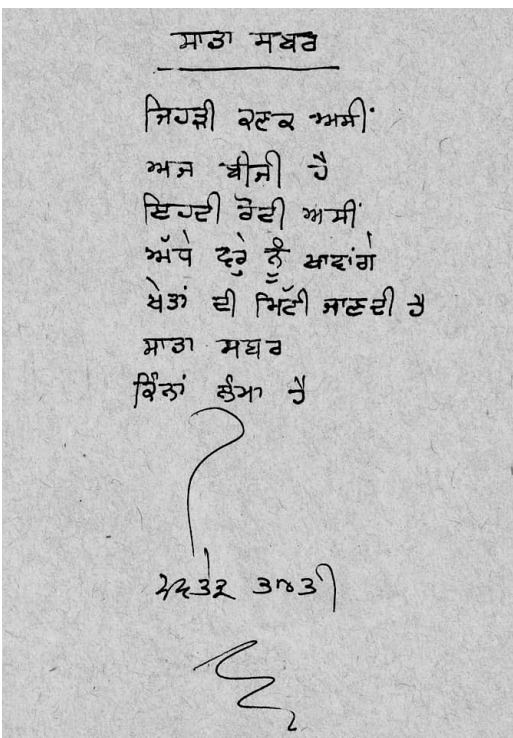 ਸਾਡਾ ਸਬਰ
ਜਿਹੜੀ ਕਣਕ ਅਸੀਂ
ਅਜ ਬੀਜੀ ਹੈ
ਇਹਦੀ ਰੋਟੀ ਅਸੀਂ
ਅੱਧੇ ਵਰ੍ਹੇ ਨੂੰ ਖਾਵਾਂਗੇ
ਖੇਤਾਂ ਦੀ ਮਿੱਟੀ ਜਾਣਦੀ ਹੈ
ਸਾਡਾ ਸਬਰ
ਕਿੰਨਾਂ ਲੰਮਾ ਹੈ